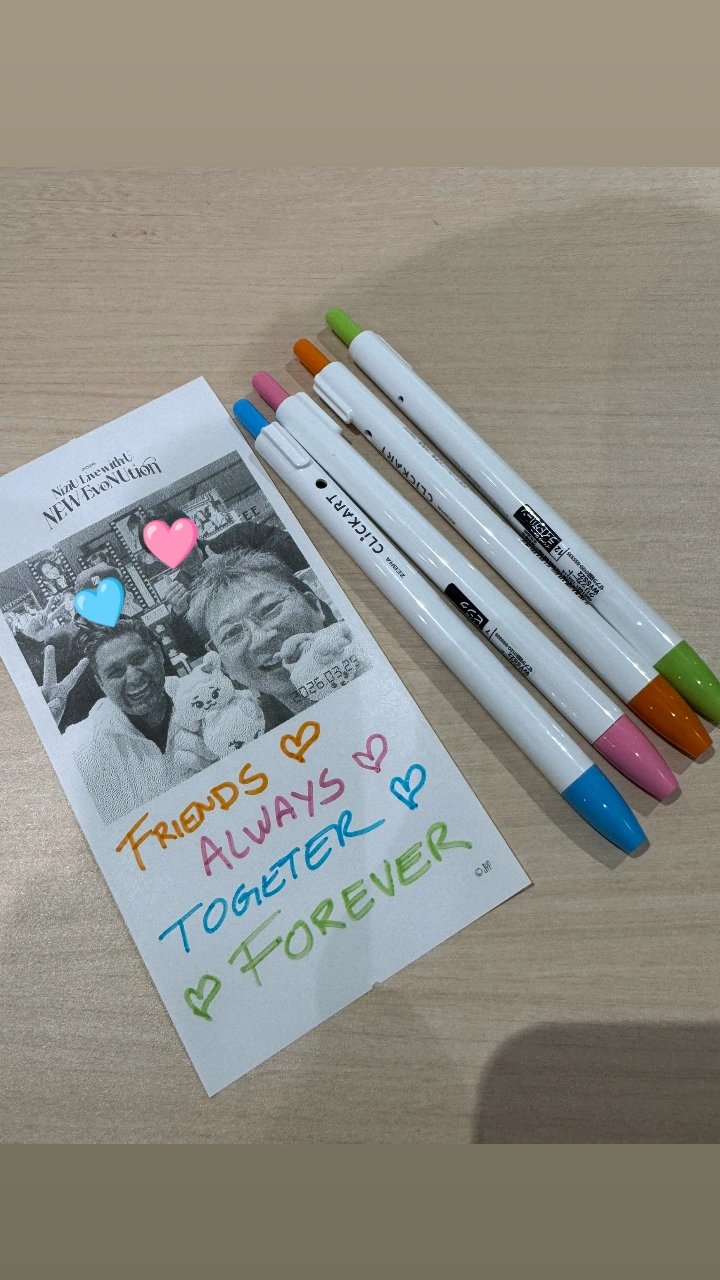 2026
NiziU Live with U
NEW EvoNUtion
EE
2026.03.25
FRIENDS
ALWAYS
TOGETER
FOREVER
© JYP
ZEBRA CLiCKART
ピンク
ZEBRA CLiCKART